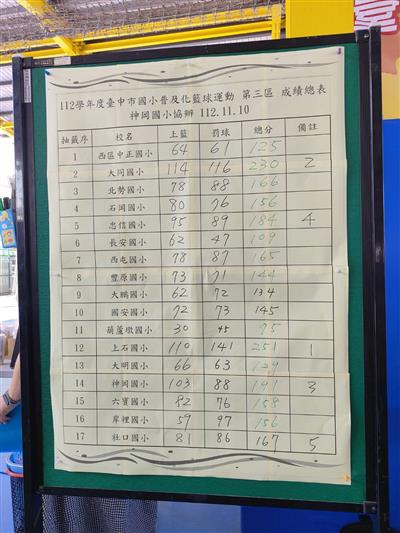 112學年度臺中市國小普及化籃球運動 第三區 成績總表
神岡國小協辦 112.11.10
抽籤序 校名 上籃 罰球 總分 備註
1 西區中正國小 64 61 125
2 大同國小 114 116 230 2
3 北勢國小 78 88 166
4 石岡國小 80 76 156
5 忠信國小 95 89 184 4
6 長安國小 62 47 109
7 西屯國小 78 87 165
8 豐原國小 73 71 144
9 大鵬國小 62 72 134
10 國安國小 72 73 145
11 葫蘆墩國小 30 45 75
12 上石國小 110 141 251 1
13 大明國小 66 63 129
14 神岡國小 103 88 191 3
15 六寶國小 82 76 158
16 岸裡國小 59 97 156
17 社口國小 81 86 167 5